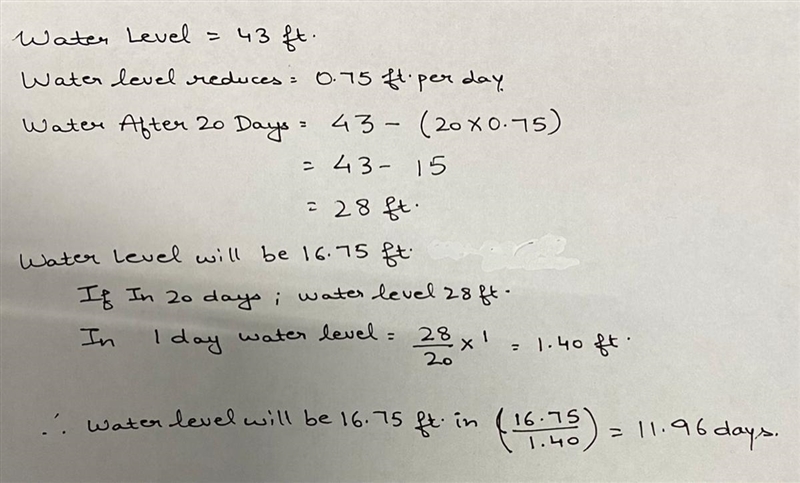 Water Level = 43 ft.
Water level reduces = 0.75 ft. per day
Water After 20 Days = 43 - (20 x 0.75)
= 43 - 15
= 28 ft.
Water Level will be 16.75 ft.
If In 20 days ; water level 28 ft.
In 1 day water level = 28/20 x 1 = 1.40 ft.
∴ Water level will be 16.75 ft. in (16.75/1.40) = 11.96 days.